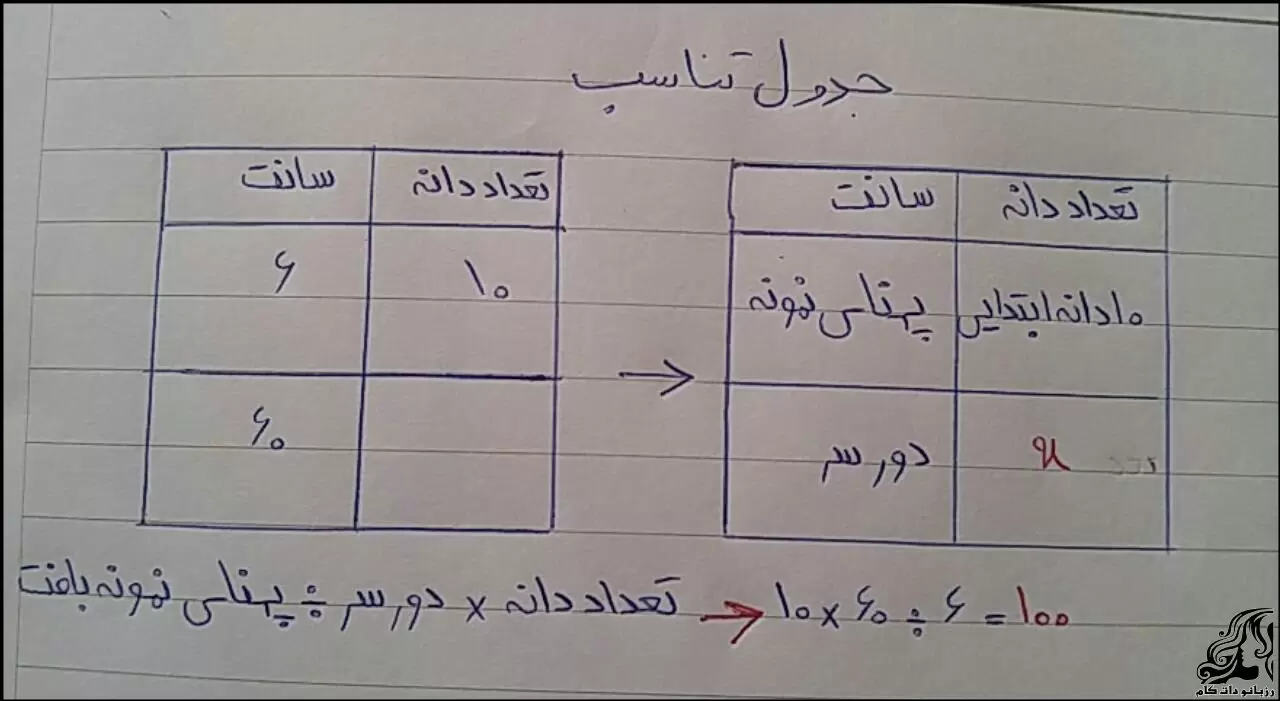 جدول تناسب
تعداد دانه سانت
۱۰ دانه ابتدایی پهنای نمونه
x دور سر
→
تعداد دانه سانت
۱۰ ۶
۶۰
تعداد دانه × دور سر ÷ پهنای نمونه بافت → ۱۰ × ۶۰ ÷ ۶ = ۱۰۰
رزبانو دات کام